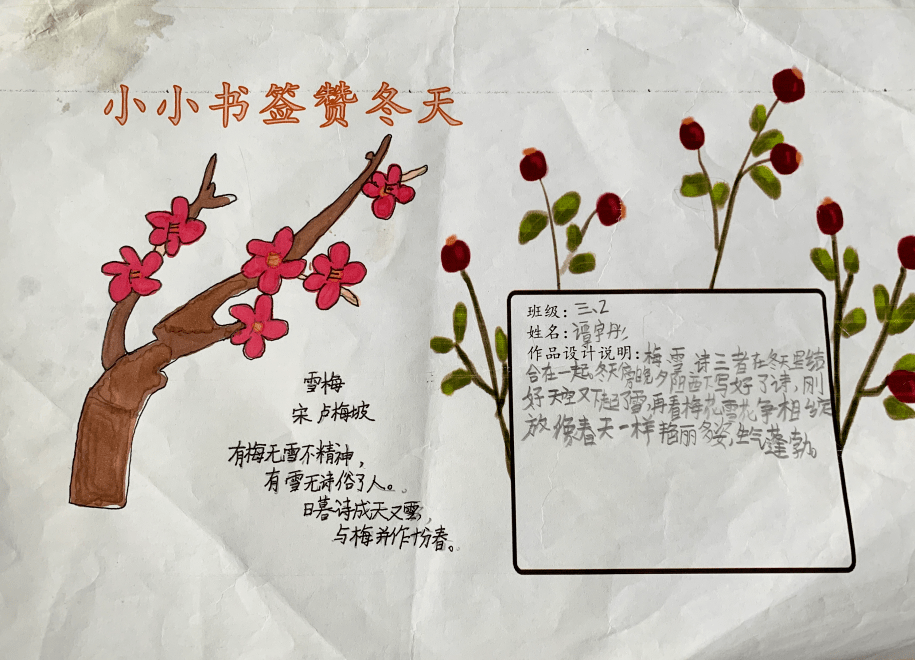 小小书签赞冬天
雪梅
宋 卢梅坡
有梅无雪不精神，
有雪无诗俗了人。
日暮诗成天又雪，
与梅并作十分春。
班级：三、2
姓名：谭宇彤
作品设计说明：梅、雪、诗三者在冬天里结
合在一起，冬天傍晚夕阳西下写好了诗，刚
好天空又下起了雪，再看梅花雪花争相绽
放，像春天一样艳丽多姿，生气蓬勃。